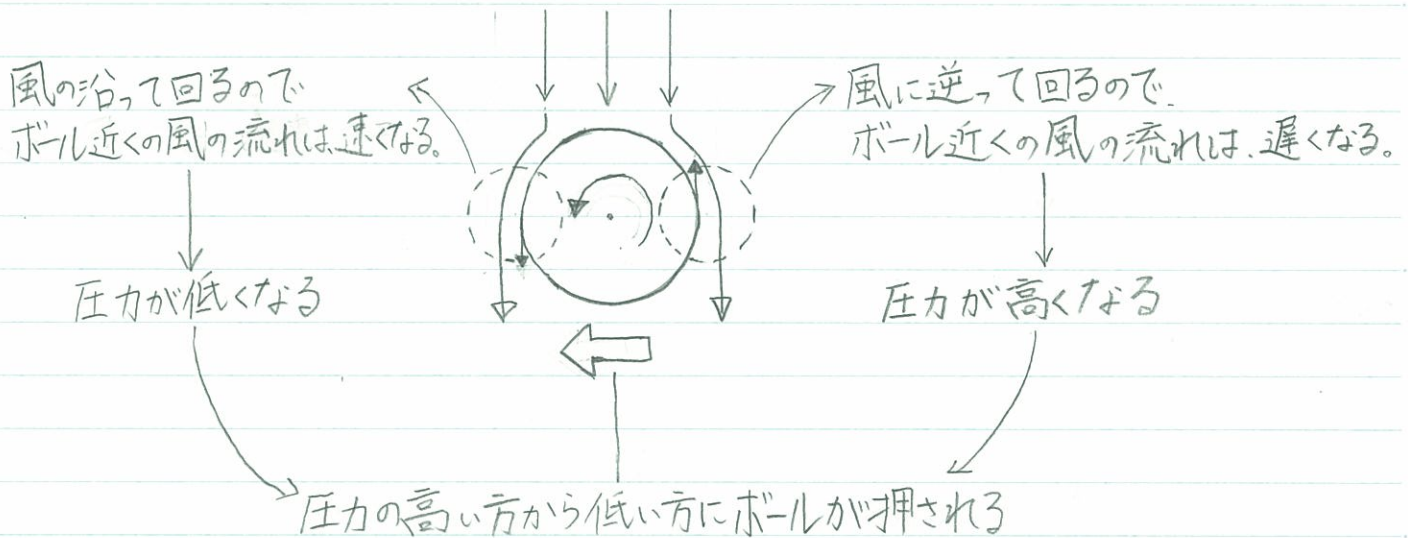 風の沿って回るので
ボール近くの風の流れは、速くなる。
圧力が低くなる
風に逆って回るので、
ボール近くの風の流れは、遅くなる。
圧力が高くなる
圧力の高い方から低い方にボールが押される